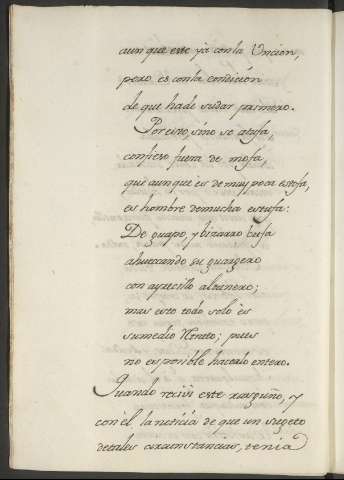 aunque este ya con la Uncion,
pero es con la condición
de que ha de sudar primero.
Por esto, sino se atufa,
confieso fuera de mofa,
que aunque es de muy poca estofa,
es hombre de mucha estufa:
De guapo, y bizarro bufa
ahuecando su guarguero
con ayrecillo altanero;
mas esto todo solo es
su medio retrato; pues
no es posible hacerlo entero.
Quando recivi este rasguño, y
con él la noticia de que un sugeto
de tales circunstancias, venia